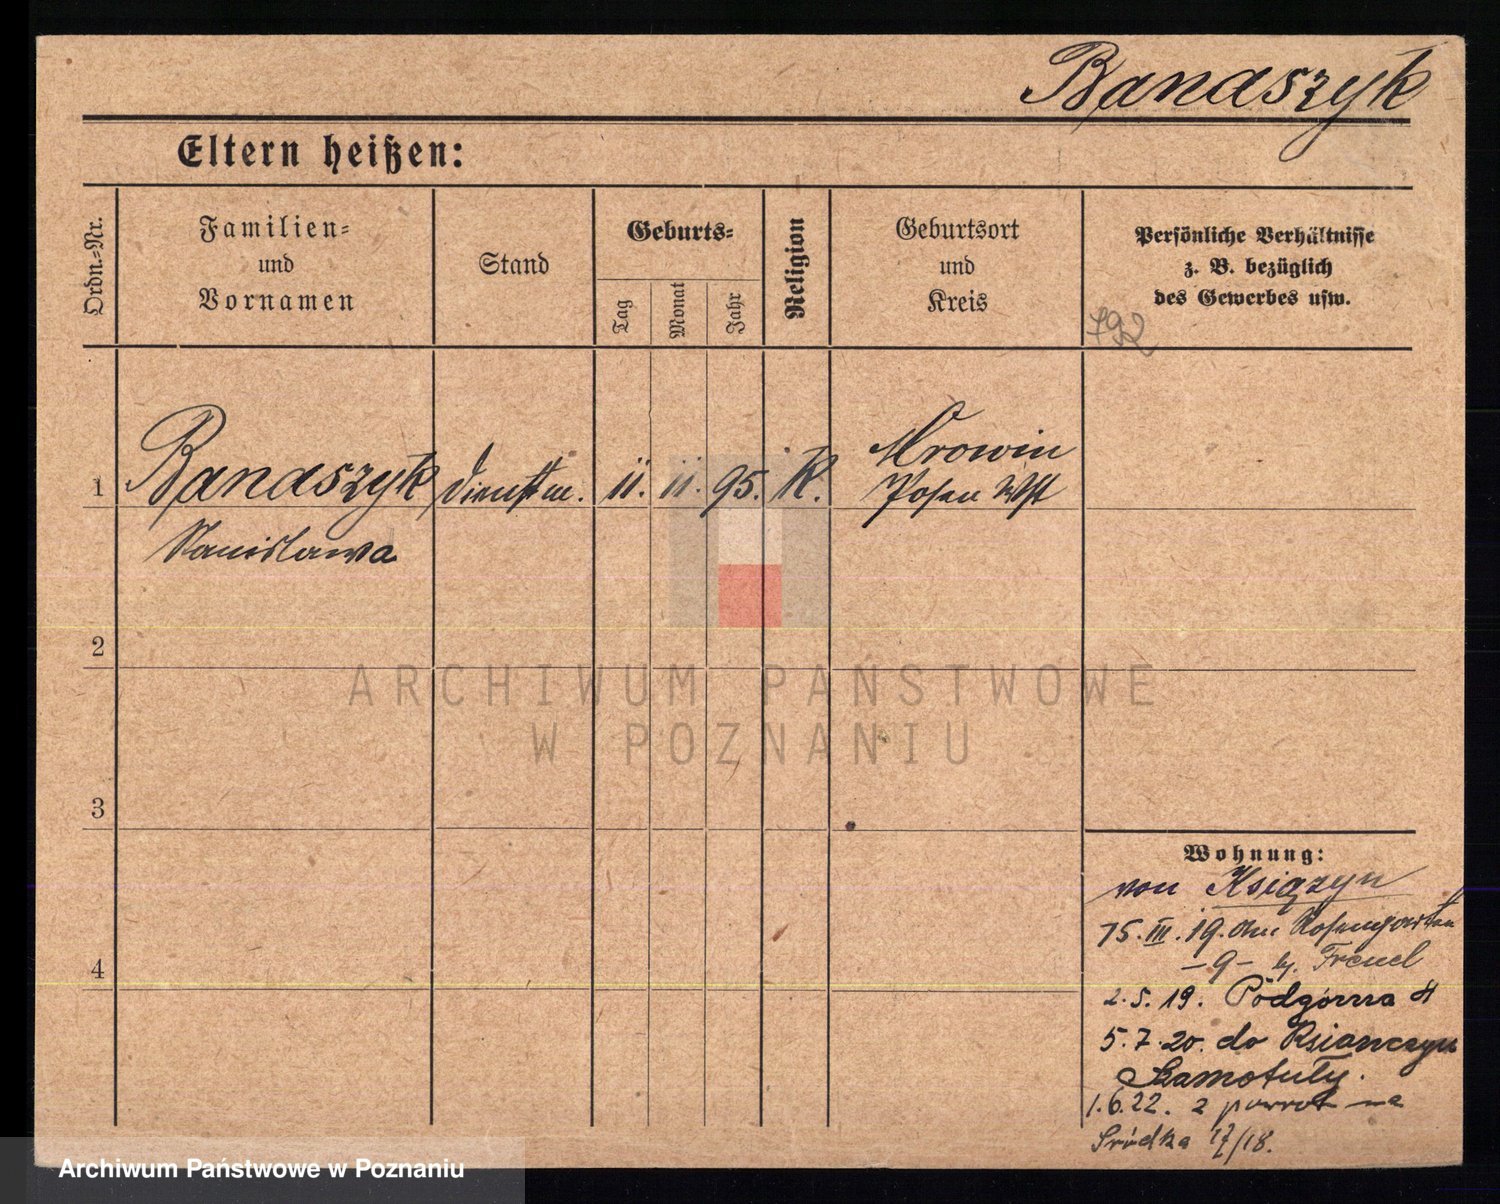 Banaszyk
Eltern heißen:
Ordn.-Nr.
Familien-
und
Vornamen
Stand
Geburts-
Tag
Monat
Jahr
Religion
Geburtsort
und
Kreis
Persönliche Verhältnisse
z. B. bezüglich
des Gewerbes usw.
792
1
Banaszyk
Stanisława
Dienstm.
11.
11.
95.
K.
Mrowin
Posen Wst
2
3
4
ARCHIWUM PAŃSTWOWE
W POZNANIU
Wohnung:
von Książyn
15. III. 19. Am Rosengarten
-9- b.
2.5.19. Podgórna 4
5.7.20. do Ksianczyn
Szamotuły.
1.6.22. z powrot na
Śródka 17/18.
Archiwum Państwowe w Poznaniu